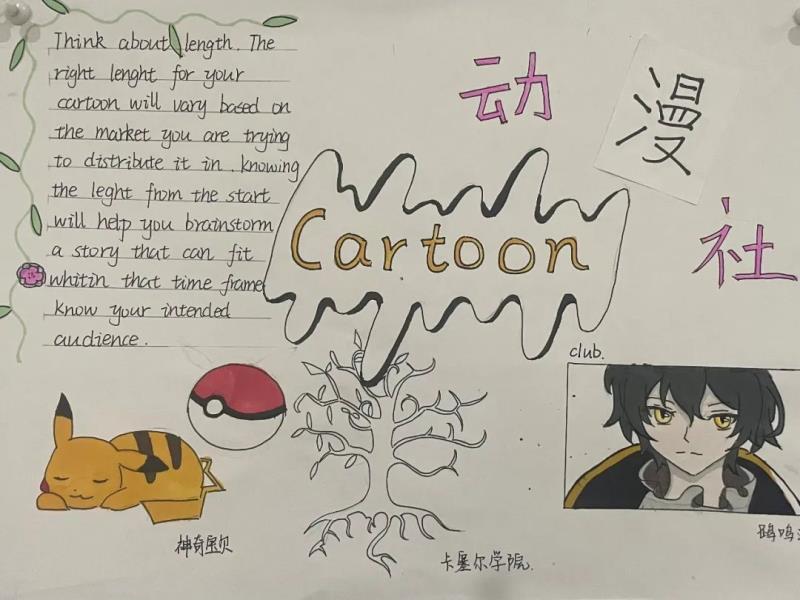 Think about length. The
right lenght for your
cartoon will vary based on
the market you are trying
to distribute it in. knowing
the leght from the start
will help you brainstorm
a story that can fit
whitin that time frame
know your intended
audience.
动漫社
Cartoon
club.
神奇宝贝
卡塞尔学院.